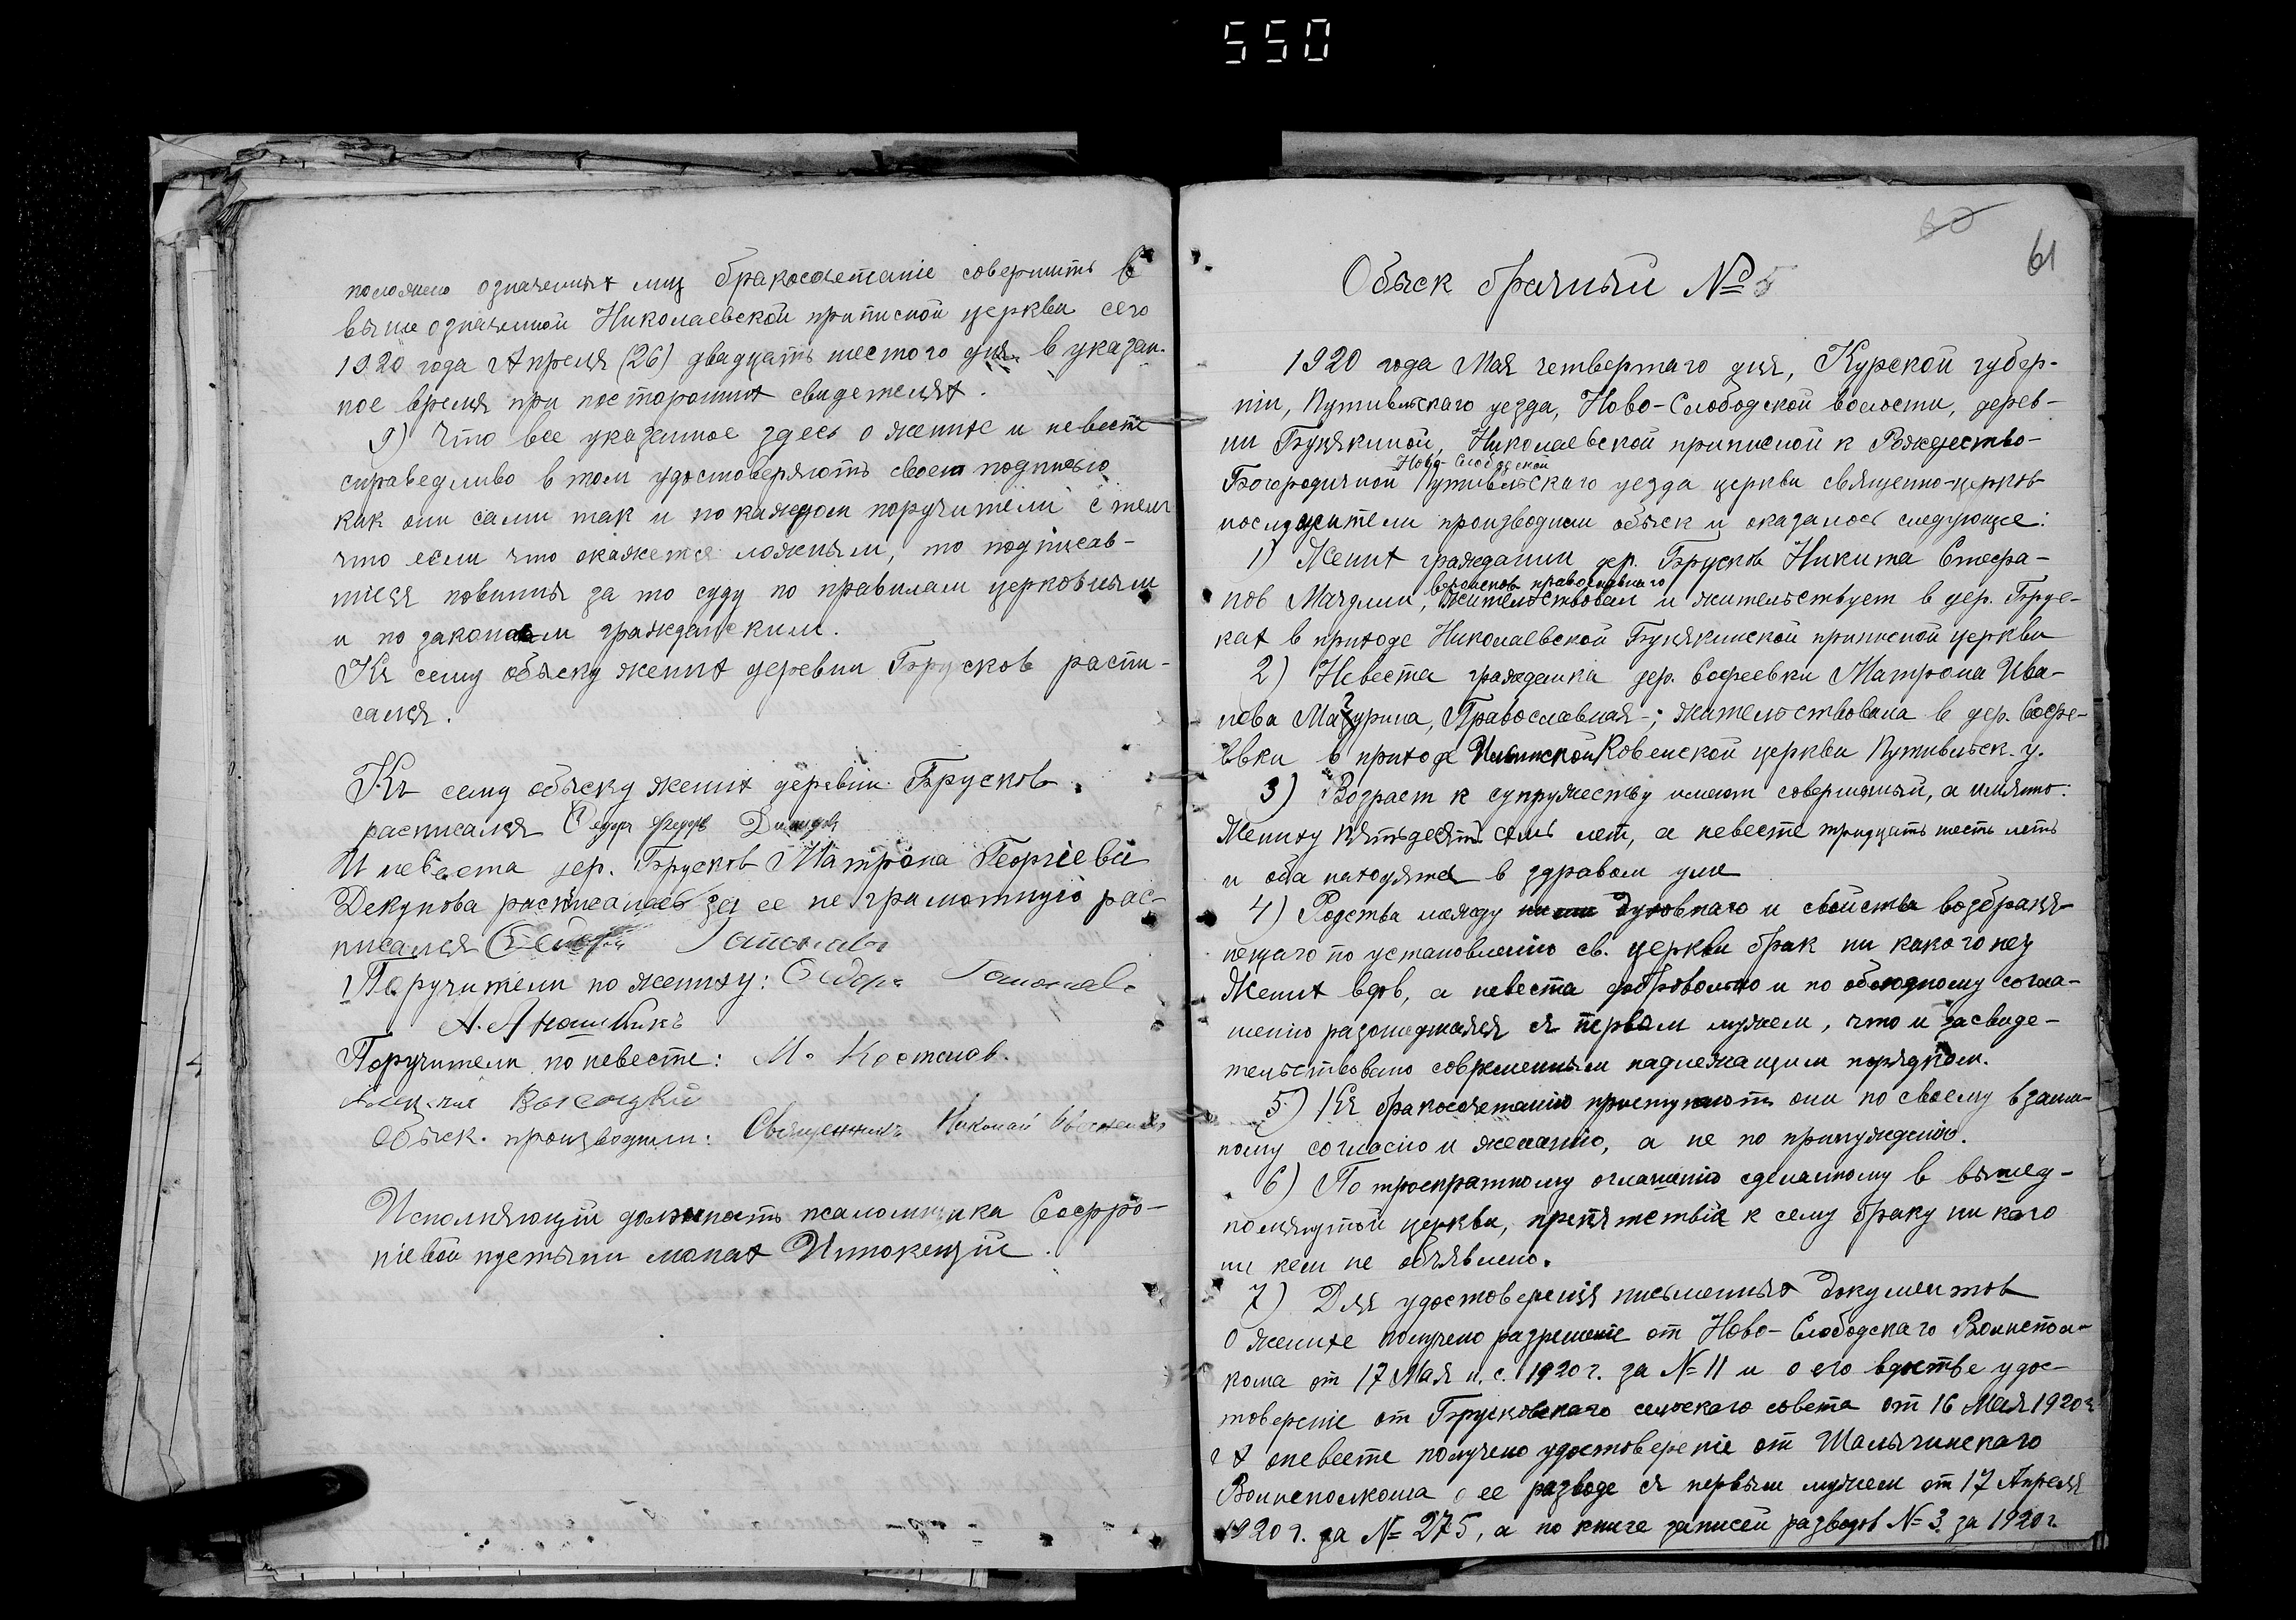 550
положено означенных лиц бракосочетаніе совершить в
выше означенной Николаевской приписной церкви сего
1920 года Апреля (26) двадцать шестого дня в указан-
ное время при посторонних свидетелях.
9) Что все указанное здесь о женихе и невесте
справедливо в том удостоверяють своею подписью
как они сами так и по каждом поручители с тем
что если что окажется ложным, то подписав-
шиеся повинны за то суду по правилам церковным
и по законам гражданским.
Къ сему обыску жених деревни Брусков распи-
сался.
Къ сему обыску жених деревни Брусков
расписался
И невеста дер. Брусков Матрона Георгіева
Декунова расписалась за ее не грамотную рас-
писался
Поручители по жениху:
Поручители по невесте: М.
Обыск производили: Священникъ Николай
Исполняющій должность псаломщика Софро-
ніевой пустыни монах Иннокентій.
60
61
Обыск брачный № 5
1920 года Мая четвертаго дня, Курской губер-
ніи, Путивльскаго уезда, Ново-Слободской волости, дерев-
ни Бунякиной, Николаевской приписной к Рождество-
Ново-Слободской
Богородичной Путивльскаго уезда церкви священно-церков-
нослужители производили обыск и оказалось следующее:
1) Жених гражданин дер. Брусков Никита Стефа-
вероисповед. православнаго
нов Мачулин, жительствовал и жительствует в дер. Брус-
ках в приходе Николаевской Бунякинской приписной церкви
2) Невеста гражданка дер. Софеевки Матрона Ива-
нова Мазурина, Православная; жительствовала в дер. Софе-
евки в приходе Ильинской Ковенской церкви Путивльск. у.
3) Возраст к супружеству имеют совершенный, а имянно:
Жениху пятьдесят семь лет, а невесте тридцать шесть леть
и оба находятся в здравом уме
4) Родства между ними духовнаго и свойства возбраня-
ющаго по установленію св. церкви брак ни какого нет
Жених вдов, а невеста добровольно и по обоюдному согла-
шению разошедшаяся съ первым мужем, что и засвиде-
тельствовано современным надлежащим порядком.
5) Къ бракосочетанію приступают они по своему взаим-
ному согласію и желанію, а не по принужденію.
6) По троекратному оглашенію сделанному в вышеу-
помянутой церкви, препятствія к сему браку ни каго
ни кем не объявлено.
7) Для удостоверенія письменных документов
О женихе получено разрешеніе от Ново-Слободскаго Воинспол-
кома от 17 Мая н. с. 1920 г. за № 11 и о его вдовстве удос-
товереніе от Брусковскаго сельскаго совета от 16 Мая 1920 г.
А о невесте получено удостовереніе от Шалыгинскаго
Воинсполкома о ее разводе съ первым мужем от 17 Апреля
1920 г. за № 275, а по книге записей разводов № 3 за 1920 г.